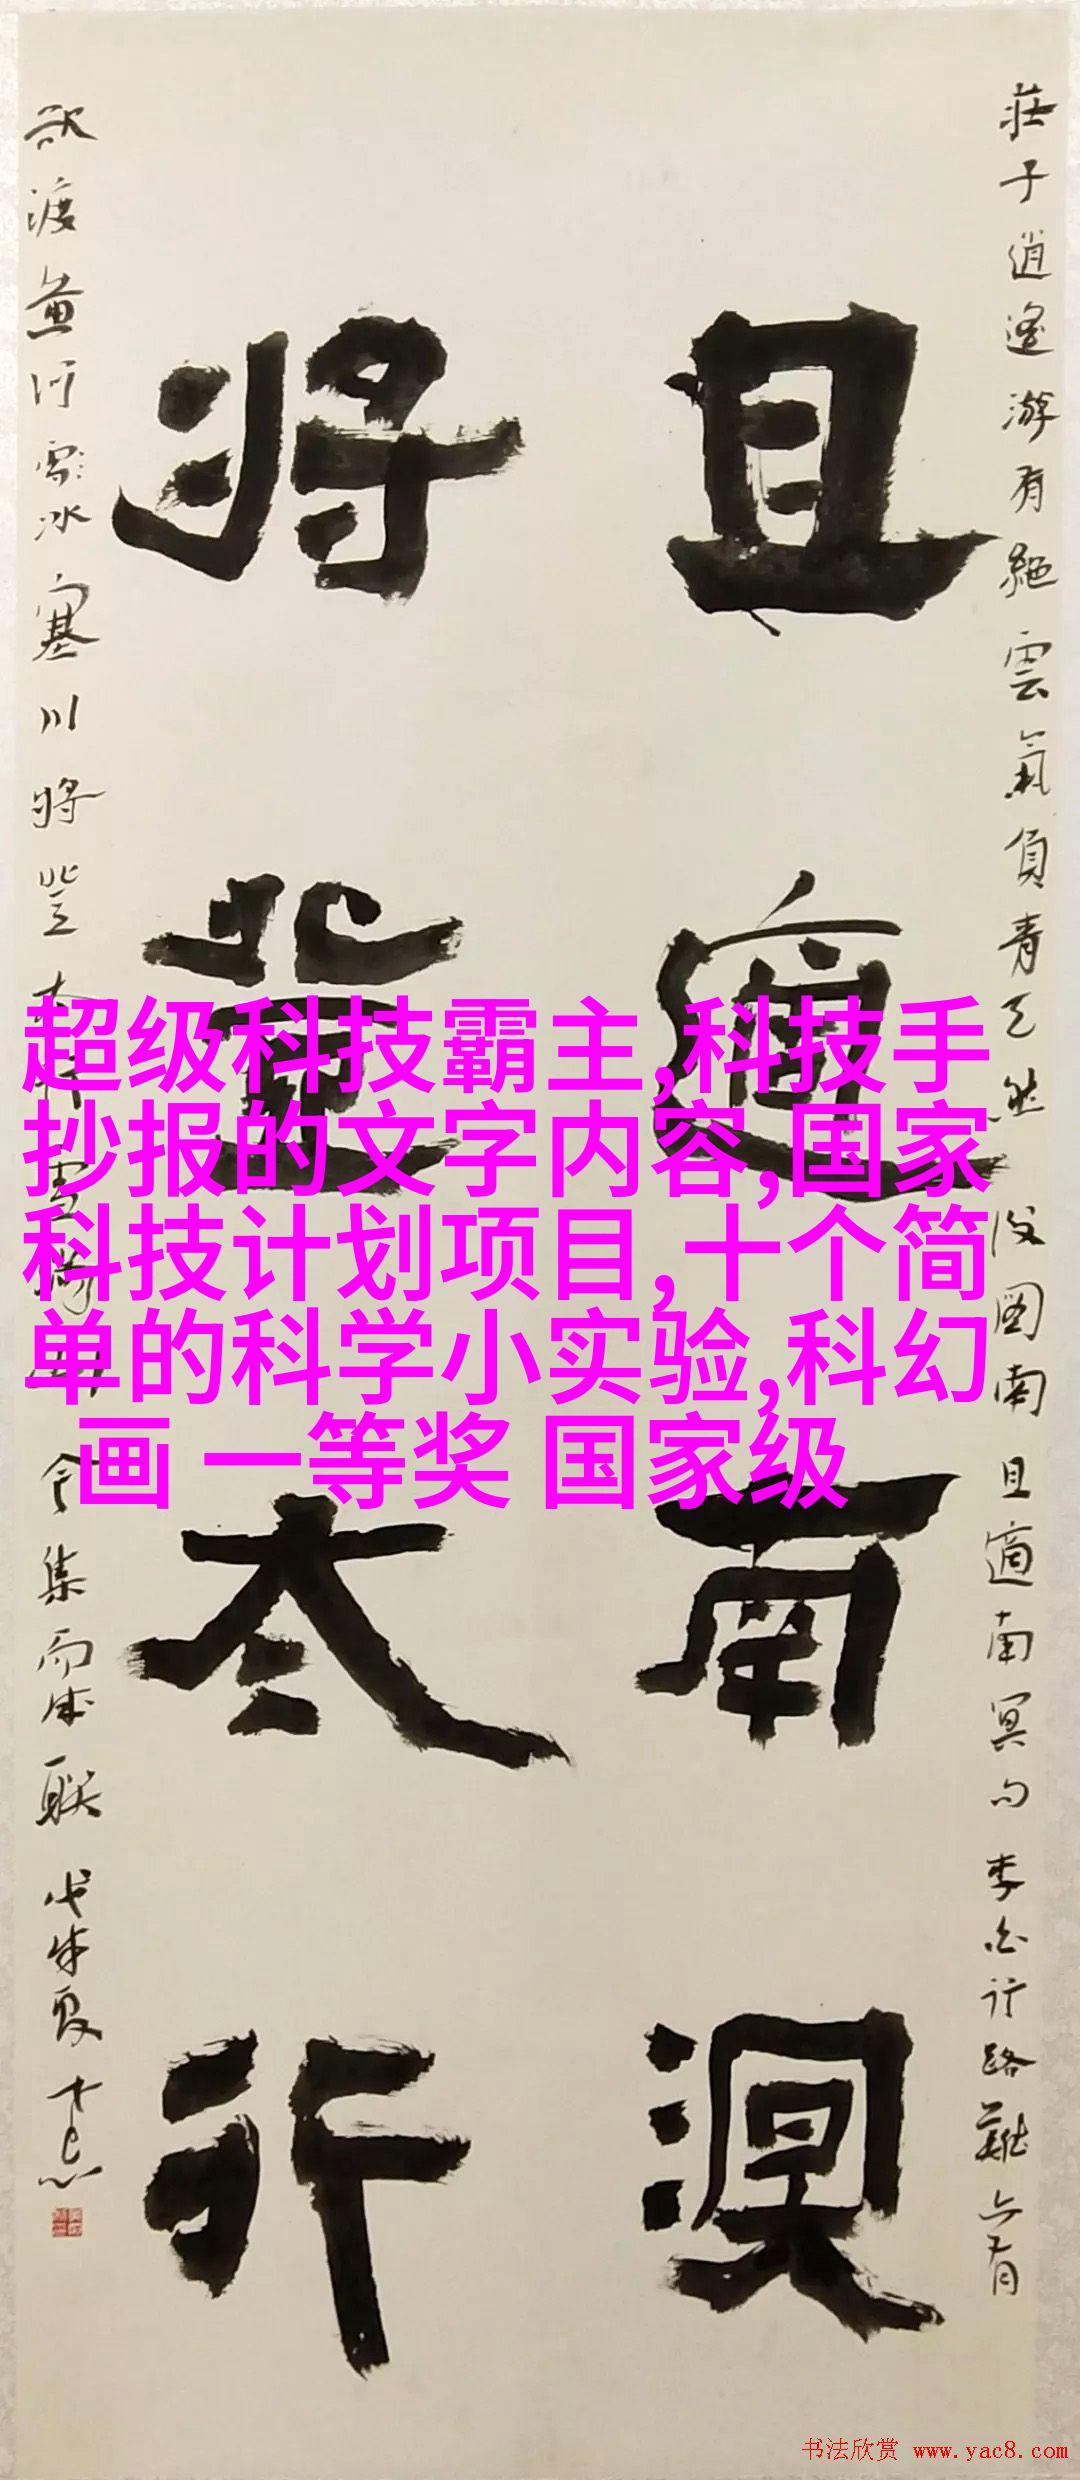 莊子逍遙游有絕雲氣負青天然後圖南且適南冥句李白行路難亦有
且適南溟
將登太行
欲渡黃河冰塞川將登太行雪
今集而成联戊戌夏
超级科技霸主,科技手
抄报的文字内容,国家
科技计划项目,十个简
单的科学小实验,科幻
画 一等奖 国家级
书法欣赏 www.yac8.com